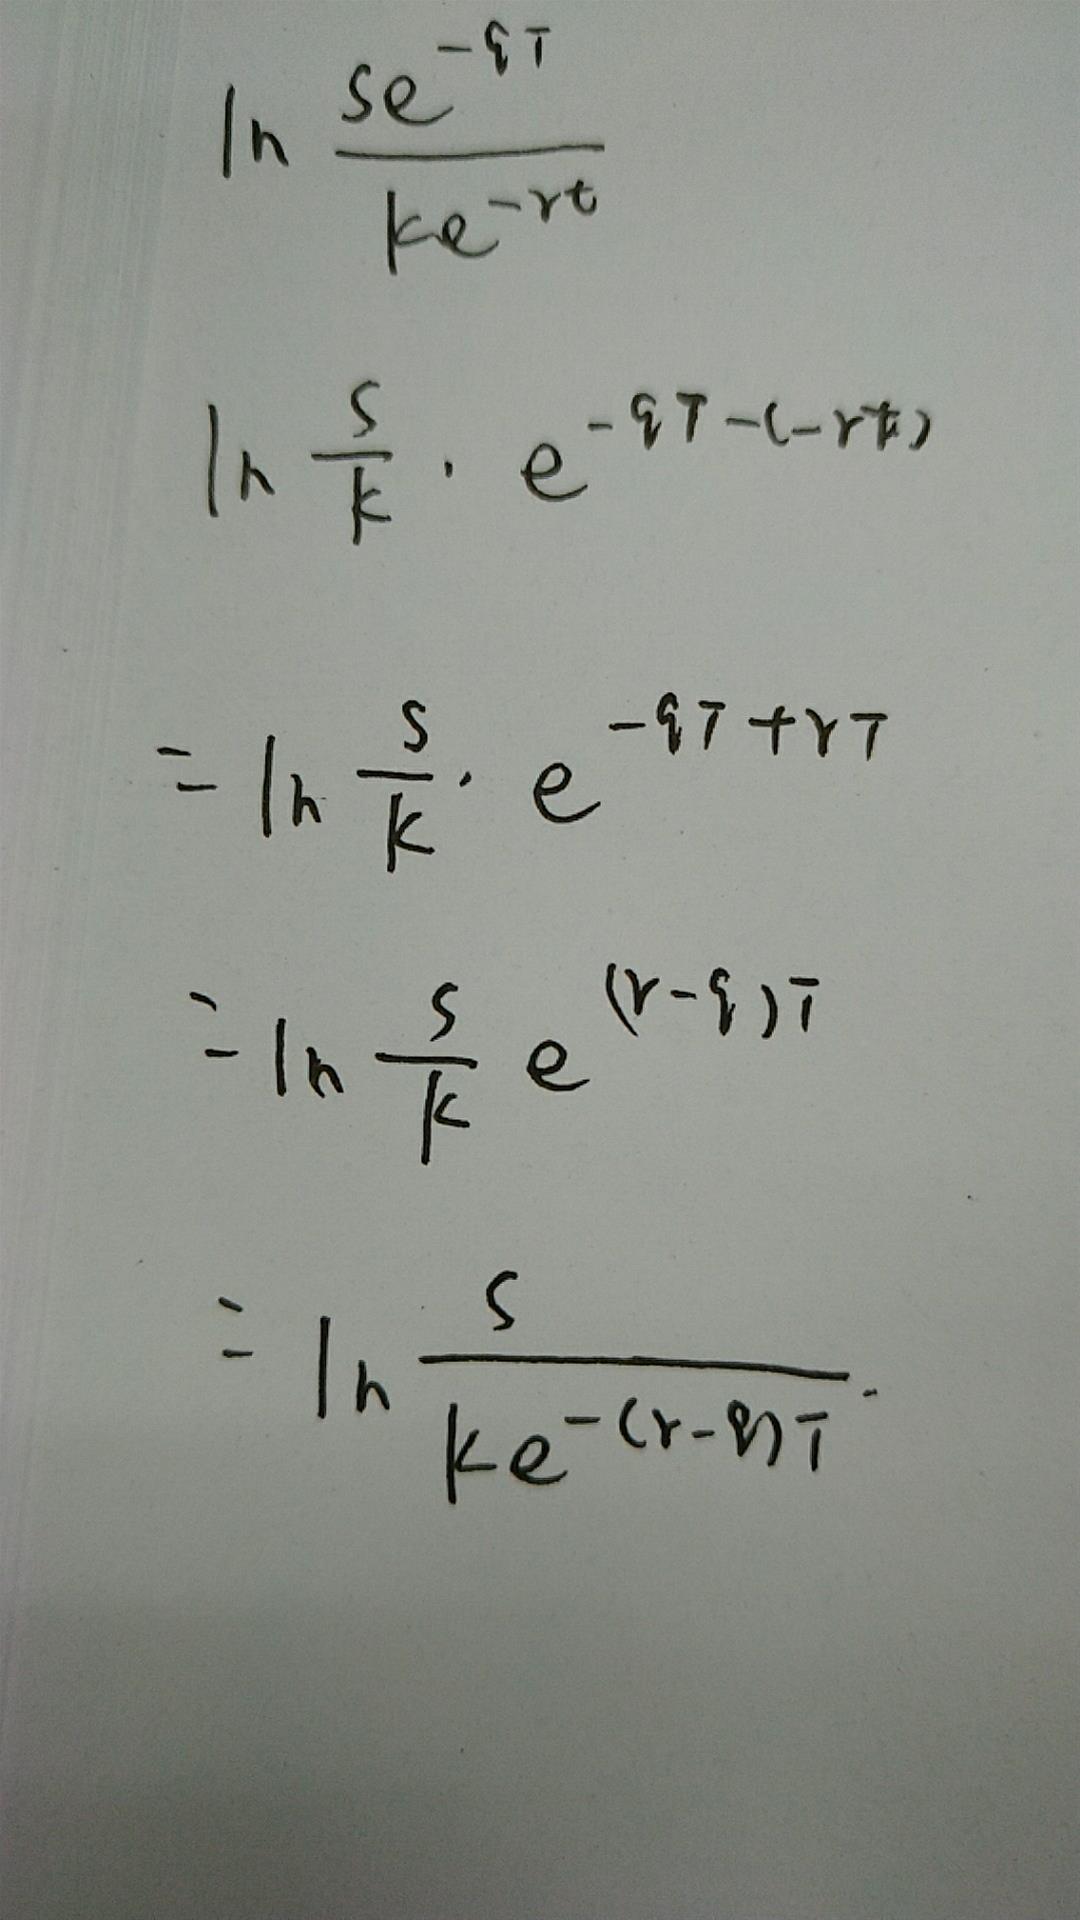 ln \frac{se^{-qT}}{ke^{-rt}}
ln \frac{s}{k} · e^{-qT-(-rt)}
= ln \frac{s}{k} · e^{-qT+rT}
= ln \frac{s}{k} e^{(r-q)T}
= ln \frac{s}{ke^{-(r-q)T}}.